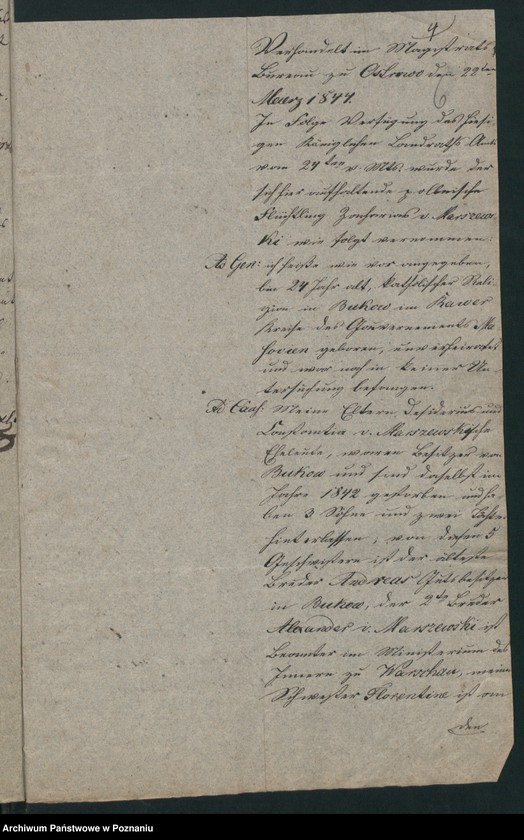 4
Verhandelt im Magistrats
Bureau zu Ostrowo den 22ten
Maerz 1844.
In Folge Verfügung des hiesi-
gen Königlichen Landraths Amts
vom 24ten v. Mts. wurde der
sich hier aufhaltende polnische
Flüchtling Zacharias v. Marszews-
ki wie folgt vernommen:
Ad Gen: ich heiße wie vor angegeben,
bin 24 Jahr alt, katholischer Reli-
gion in Bukow im Kreise des Gouvernements Ma-
sovien geboren, unverheirathet
und war noch in keiner Un-
tersuchung befangen.
Ad Caus: Meine Eltern, Desiderius und
Constantia v. Marszewskische
Eheleute, waren Besitzer von
Bukow und sind daselbst im
Jahre 1842 gestorben und ha-
ben 3 Söhne und zwei Töchter
hinterlassen; von diesen 5
Geschwistern ist der älteste
Bruder Andreas Gutsbesitzer
in Bukow, der 2te Bruder
Alexander v. Marszewski ist
Beamter im Ministerium des
Innern zu Warschau, meine
Schwester Florentine ist an
den
Archiwum Państwowe w Poznaniu